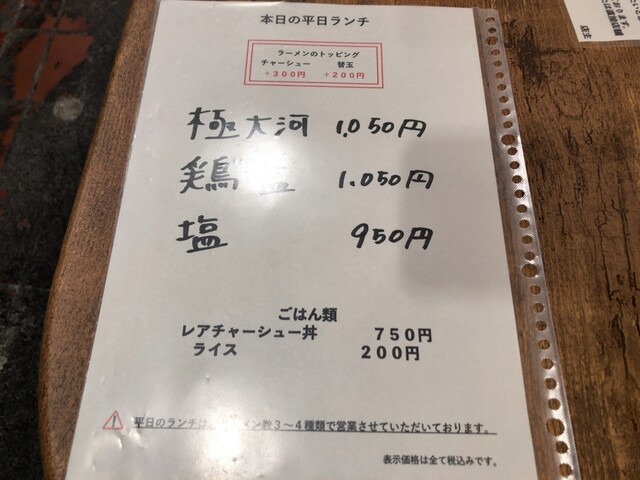 本日の平日ランチ
ラーメンのトッピング
チャーシュー 替玉
+300円 +200円
極大河 1,050円
鶏塩 1,050円
塩 950円
ごはん類
レアチャーシュー丼 750円
ライス 200円
平日のランチは、ラーメン数3~4種類で営業させていただいております。
表示価格は全て税込みです。
おります。
店主